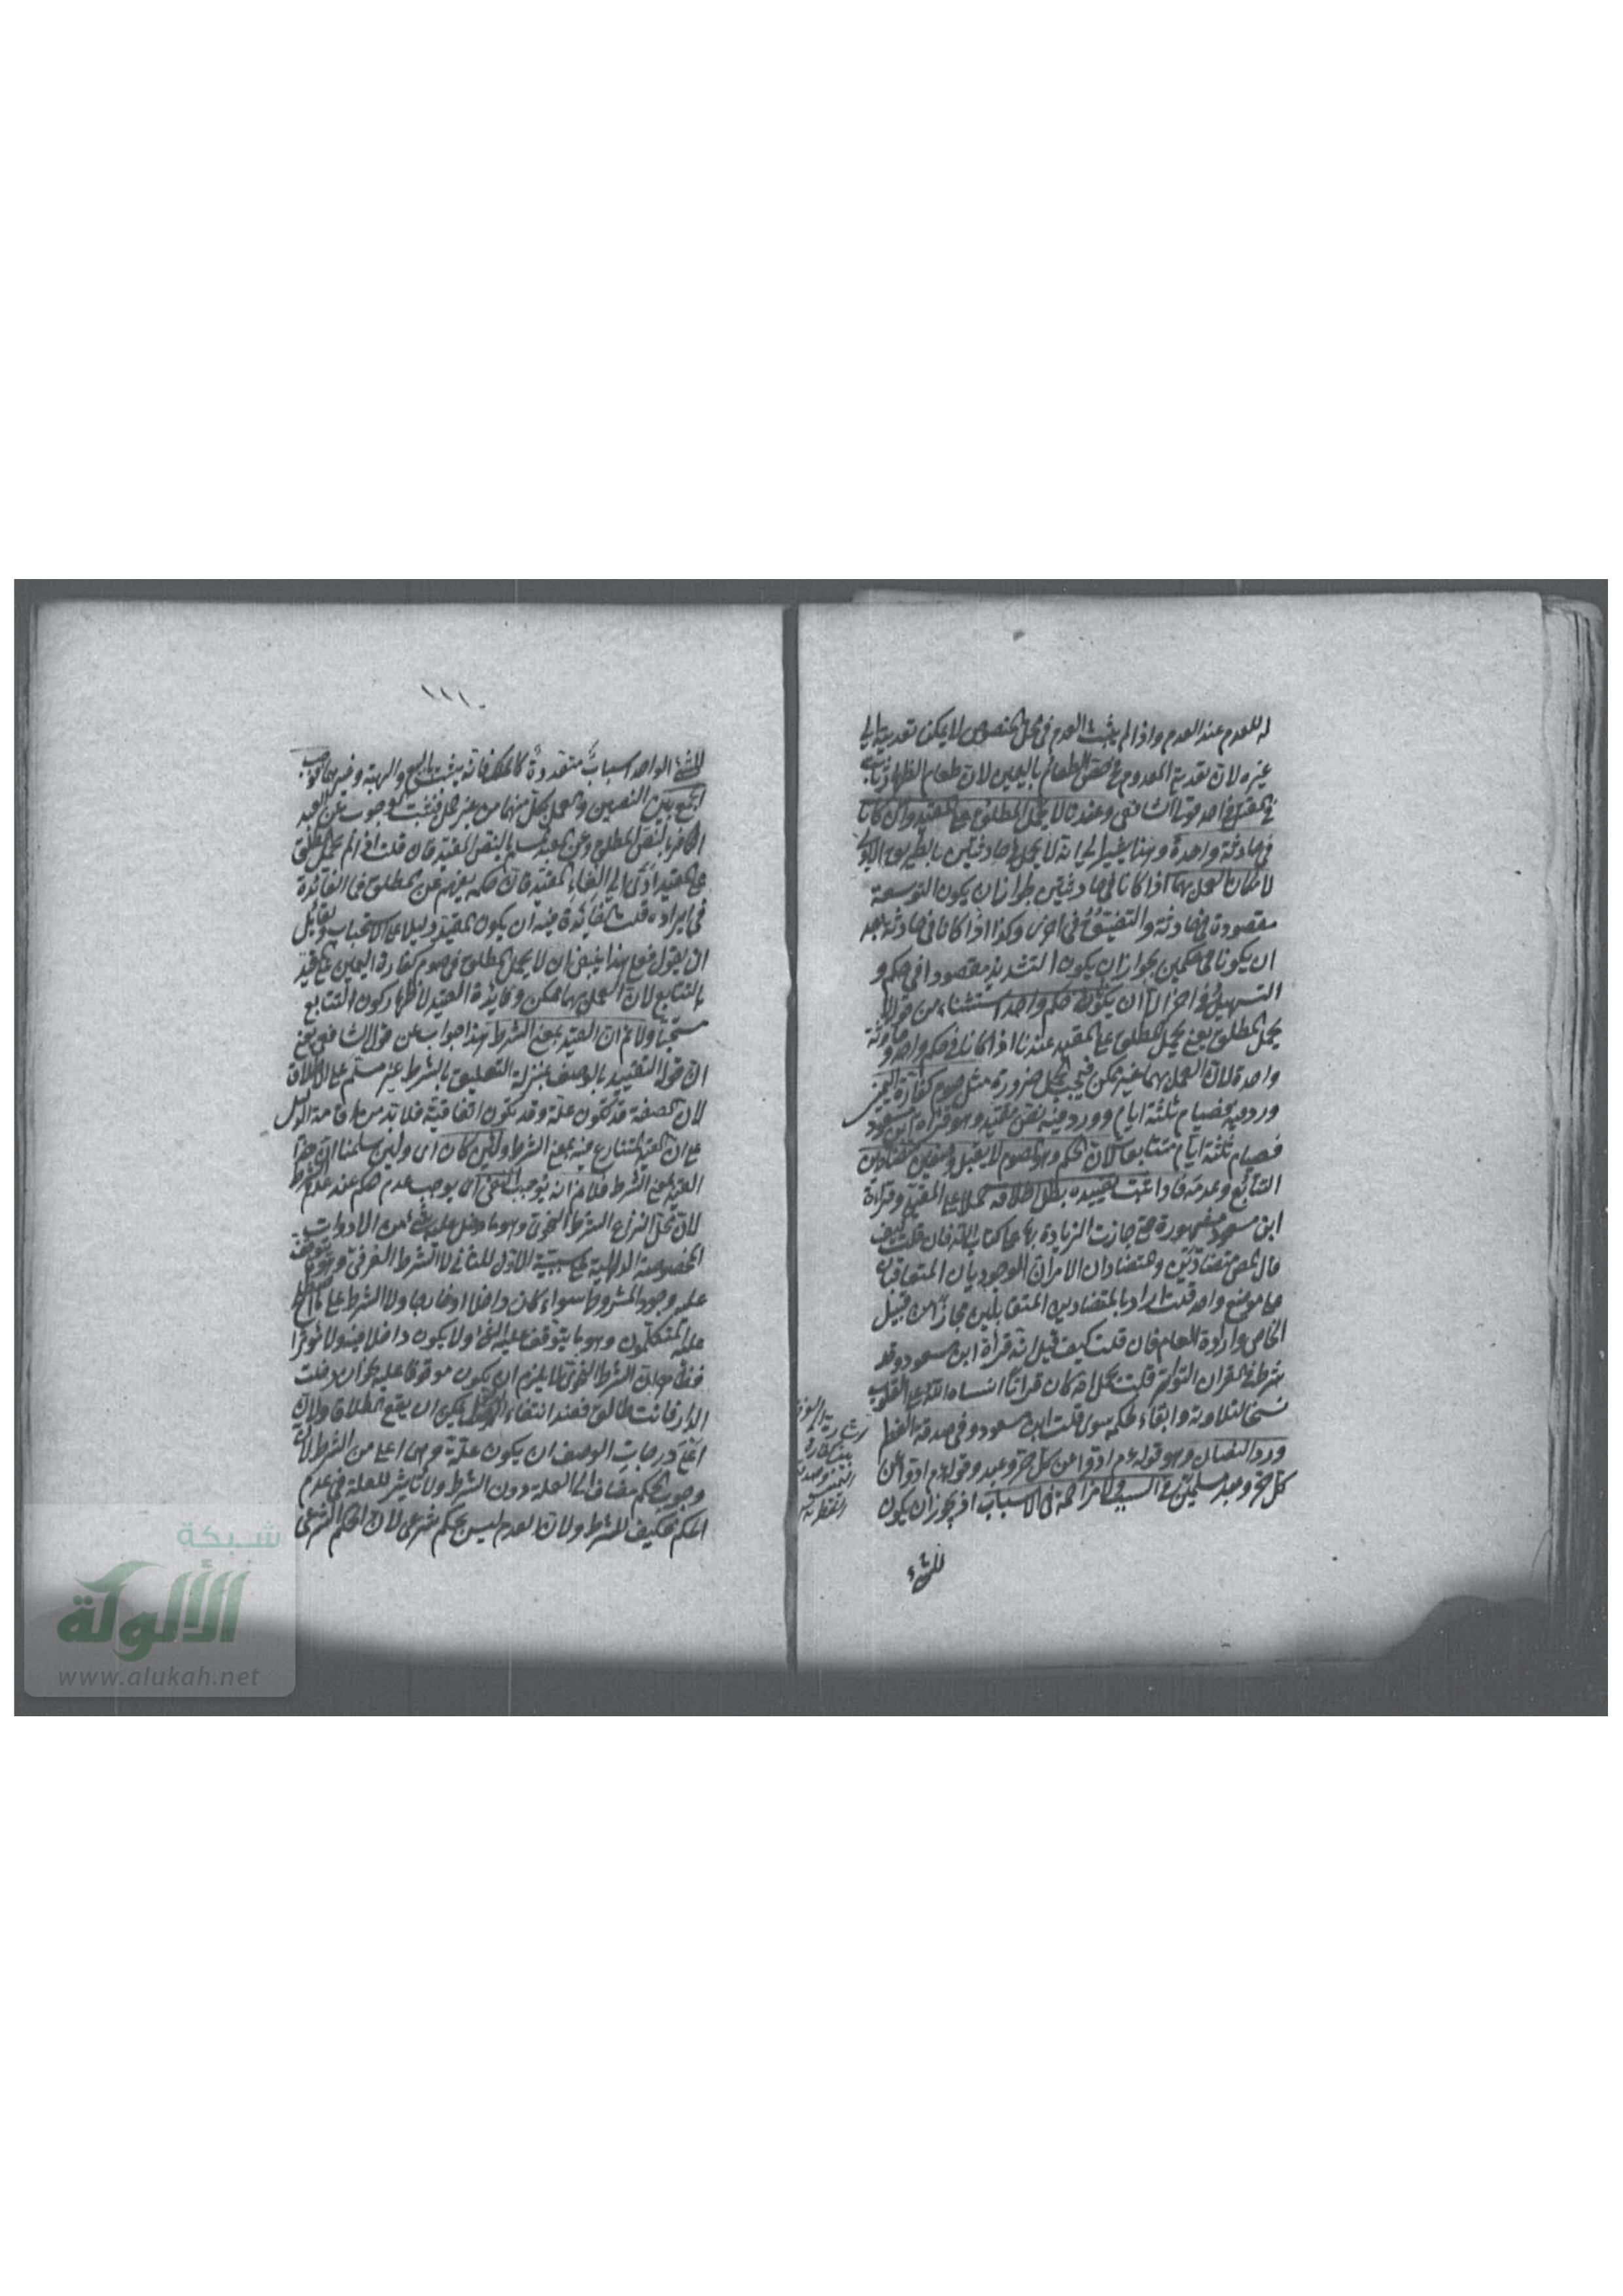 له للعدم عند العدم واذا لم يثبت العدم في محل المنصوص لا يمكن تعديته الى
غيره لان تعدية المعدوم مح الطعام باليمين لان طعام الظهار ثابت
في احد قولى الشافعى وعندنا لا يحمل المطلق على المقيد وان كانا
في حادثة واحدة وهنا يشير الى انه لا يحمل في حادثتين بالطريق الاولى
لامكان العمل بهما اذا كانا في حادثتين ان يكون التوسعة
مقصودة في حادثة والتضييق في اخرى وكذا اذا كانا في حادثة بعد
ان يكونا في حكمين لجواز ان يكون التشديد مقصودا في حكم و
التسهيل في اخر الا ان يكون في حكم واحد استثناء من قوله لا
يحمل المطلق يعنى يحمل المطلق على المقيد عندنا اذا كانا في حكم واحد و حادثة
واحدة لان العمل بهما غير ممكن فيجب الحمل ضرورة مثل صوم كفارة اليمين
ورد فيه فصيام ثلثة ايام وورد فيه نص مقيد وهو قراءة ابن مسعود
فصيام ثلثة ايام متتابعات لان الحكم وهو الصوم لا يقبل وصفين متضادين
التتابع وعدمه فاذا ثبت تقييده بطل اطلاقه حملا على المقيد وقراءة
ابن مسعود مشهورة حتى جازت الزيادة بها على كتاب الله فان قلت كيف
قال المص متضادين والمتضادان الامران الوجوديان المتعاقبان
على موضع واحد قلت اراد بالمتضادين المتقابلين مجازا من قبيل
الخاص وارادة العام فان قلت كيف قيل انه قراءة ابن مسعود وقد
شرط في القران التواتر قلت يحمل انه كان قرآنا انساه الله على القلوب
نسخا لتلاوته وابقاء لحكمه سوى قلب ابن مسعود وفي صدقة الفطر
ورد النصان وهو قوله عم ادوا عن كل حر وعبد وقوله عم ادوا عن
كل حر وعبد مسلمين في السبب ولا مزاحمة في الاسباب اذ يجوز ان يكون
للشئ
١١١
للشئ الواحد اسباب متعددة كالملك فانه يثبت بالبيع والهبة وغيرهما فوجب
الجمع بين النصين والعمل بكل منهما من غير حمل فيثبت الوجوب عن العبد
الكافر بالنص المطلق وعن العبد المسلم بالنص المقيد فان قلت اذا لم يحمل المطلق
على المقيد ادى الى الغاء المقيد فان حكمه يفهم عن المطلق فما الفائدة
في ايراده قلت الفائدة فيه ان يكون المقيد دليلا على الاستحباب ولقائل
ان يقول فعلى هذا ينبغى ان لا يحمل المطلق في صوم كفارة اليمين على المقيد
بالتتابع لان العمل بهما ممكن وفائدة القيد لاظهار كون التتابع
مستحبا ولا نم ان القيد بمعنى الشرط هذا جواب عن قول الشافعى يعنى
ان قوله التقييد بالوصف بمنزلة التعليق بالشرط غير مسلم على الاطلاق
لان الصفة قد تكون علة وقد تكون اتفاقية فلا بد من اقامة الدليل
على ان القيد المتنازع فيه بمعنى الشرط ولئن كان اى ولئن سلمنا ان هذا
القيد بمعنى الشرط فلا نم انه يوجب النفى اى يوجب عدم الحكم عند عدم الشرط
لان محل النزاع الشرط النحوى وهو ما دخل عليه شئ من الادوات
المخصوصة الدالة على سببية الاول للثانى لا الشرط العرفى وهو ما يتوقف
عليه وجود المشروط سواء كان داخلا او خارجا ولا الشرط على ما اصطلح
عليه المتكلمون وهو ما يتوقف عليه الشئ ولا يكون داخلا فيه ولا مؤثرا
فيه الشرط النحوى لا يلزم ان يكون موقوفا عليه نحو ان دخلت
الدار فانت طالق فعند انتفاء الدخول يمكن ان يقع الطلاق ولان
درجات الوصف ان يكون علة وهى اعلى من الشرط لان
وجوب الحكم مضاف الى العلة دون الشرط ولا تاثير للعلة في عدم
الحكم فكيف للشرط ولان العدم ليس بحكم شرعى لان الحكم الشرعى
شبكة
الألوكة
www.alukah.net